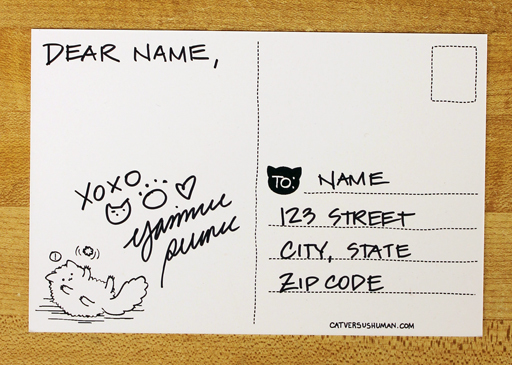 DEAR NAME,
XOXO
Yasmine
Surovec
TO: NAME
123 STREET
CITY, STATE
ZIP CODE
CATVERSUSHUMAN.COM